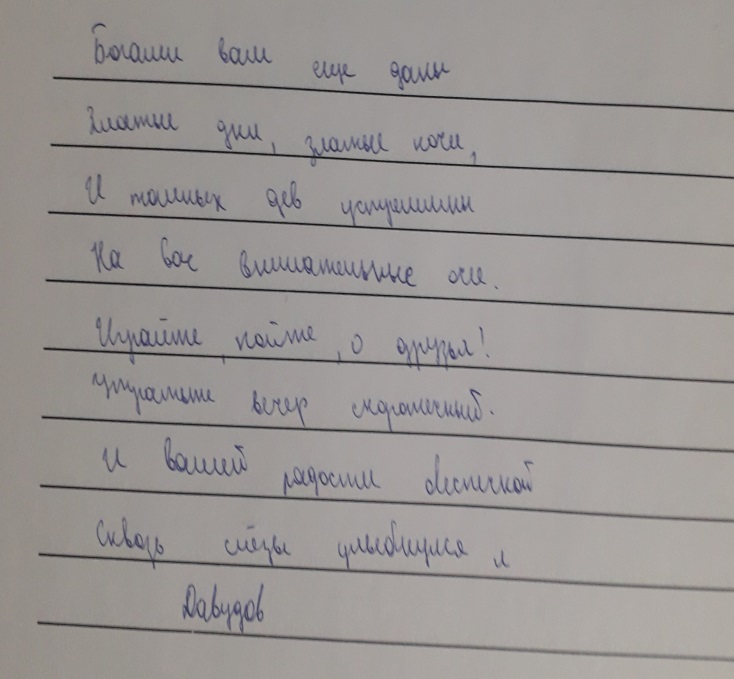 Богами вам еще даны
Златые дни, златые ночи,
И томных дев устремлины
На вас внимательные очи.
Играйте, пойте, о друзья!
Утратьте вечер скоротечный.
И вашей радости беспечной
Сквозь слёзы улыбнулся я
Давудов